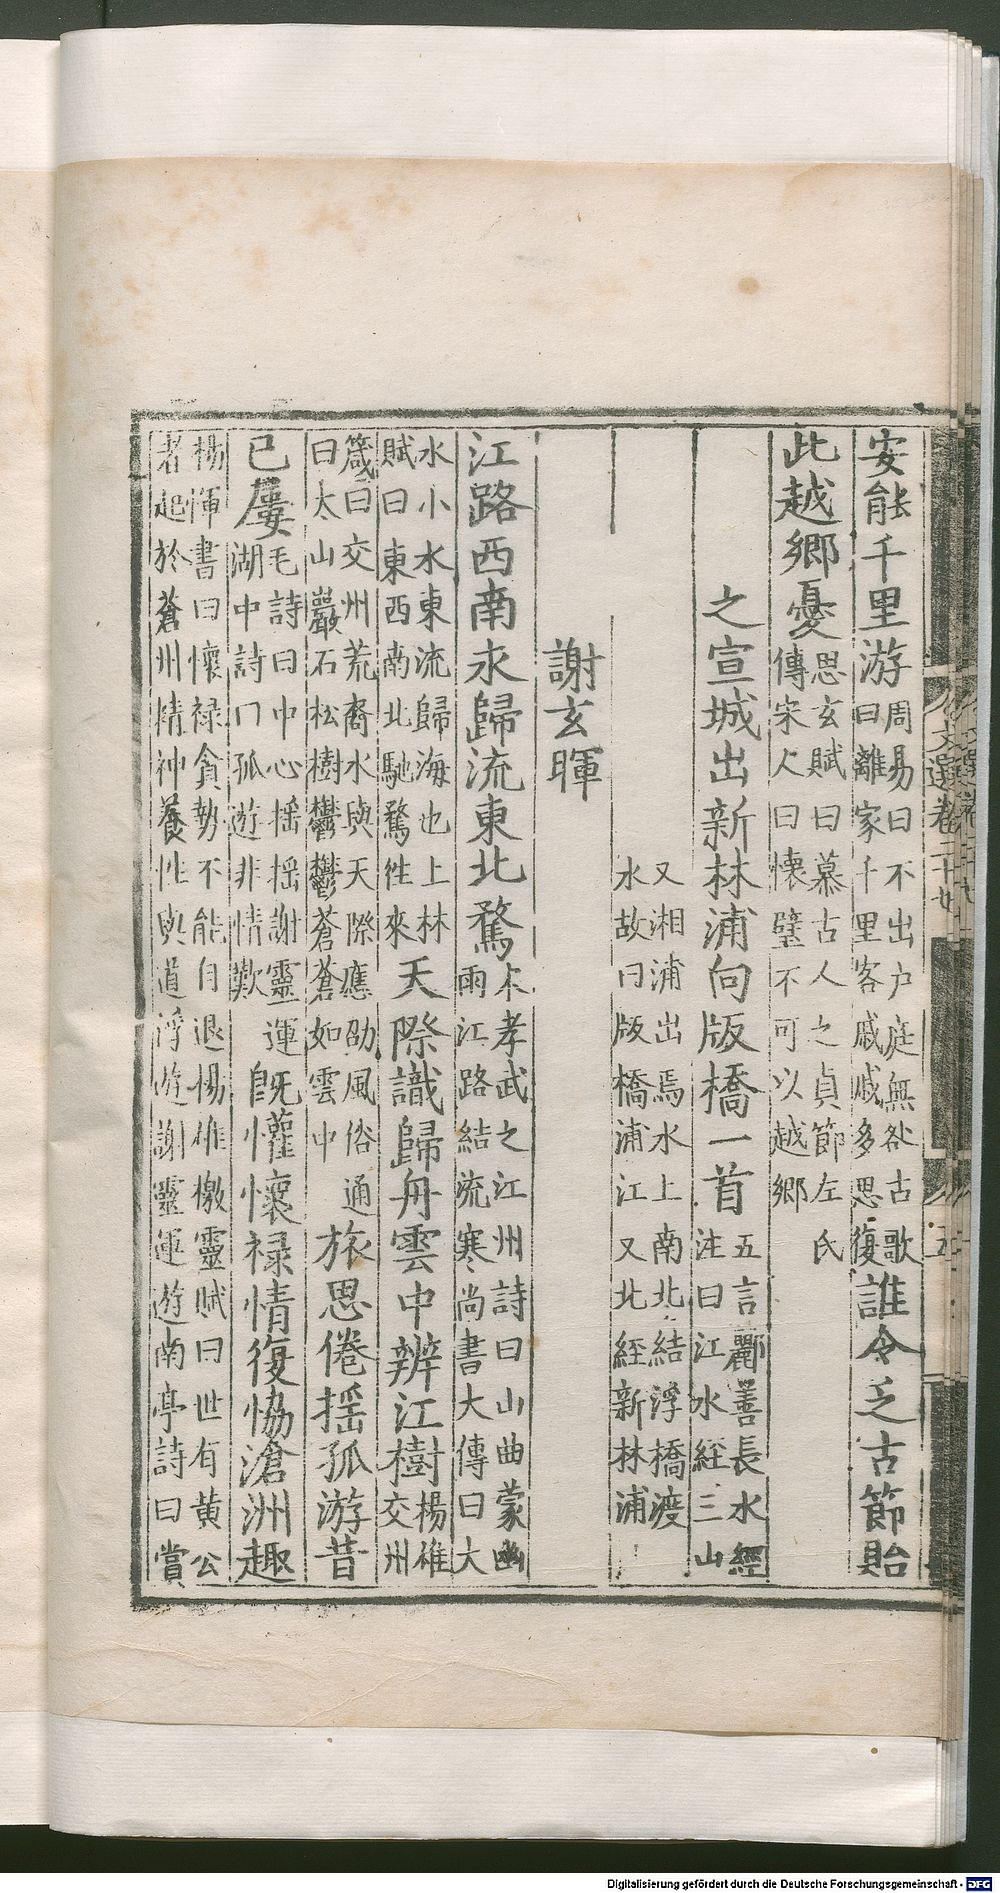 安能千里游周易曰不出户庭無咎古歌
曰離家千里客戚戚多思復誰令乏古節貽
此越鄉憂思玄賦曰慕古人之貞節左氏
傳宋人曰懷璧不可以越鄉
之宣城出新林浦向版橋一首五言酈善長水經
注曰江水經三山
又湘浦出焉水上南北結浮橋渡
水故曰版橋浦江又北經新林浦
謝玄暉
江路西南永歸流東北騖宋孝武之江州詩曰山曲蒙幽
雨江路結流寒尚書大傳曰大
水小水東流歸海也上林
賦曰東西南北馳騖往來天際識歸舟雲中辨江樹楊雄交州
箴曰交州荒裔水與天際應劭風俗通
曰太山巖石松樹鬱鬱蒼蒼如雲中旅思倦摇孤游昔
已屢毛詩曰中心摇摇謝靈運
湖中詩曰孤遊非情歎既懽懷禄情復協滄洲趣
楊惲書曰懷禄貪勢不能自退揚雄檄靈賦曰世有黄公
者起於蒼州精神養性與道浮遊謝靈運遊南亭詩曰賞
文選卷二十七
五
Digitalisierung gefördert durch die Deutsche Forschungsgemeinschaft - DFG